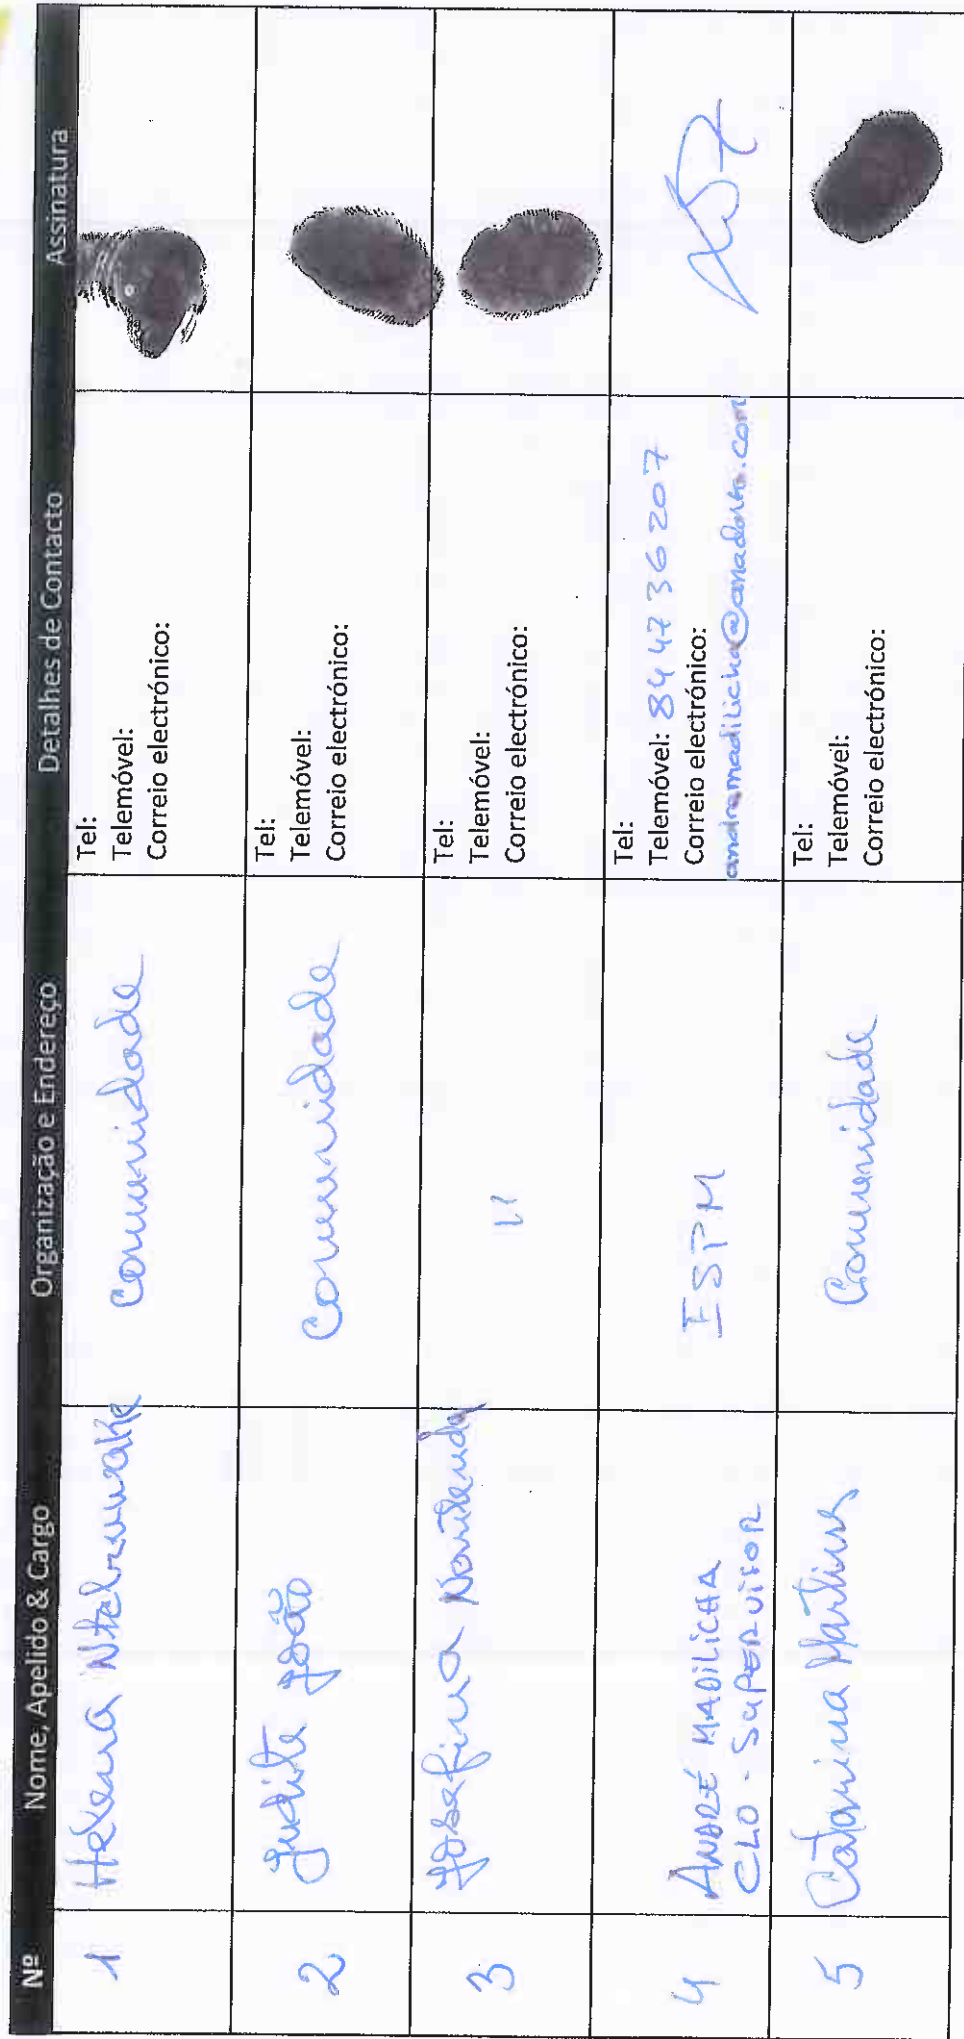 Nº Nome, Apelido & Cargo Organização e Endereço Detalhes de Contacto Assinatura
1 Helena Comunidade Tel:
Telemóvel:
Correio electrónico:
2 Judite João Comunidade Tel:
Telemóvel:
Correio electrónico:
3 Josefina " Tel:
Telemóvel:
Correio electrónico:
4 ANDRÉ MADILICHA ESPM Tel:
CLO - SUPERVISOR Telemóvel: 84 47 36 207
Correio electrónico:
5 Catarina Martins Comunidade Tel:
Telemóvel:
Correio electrónico: